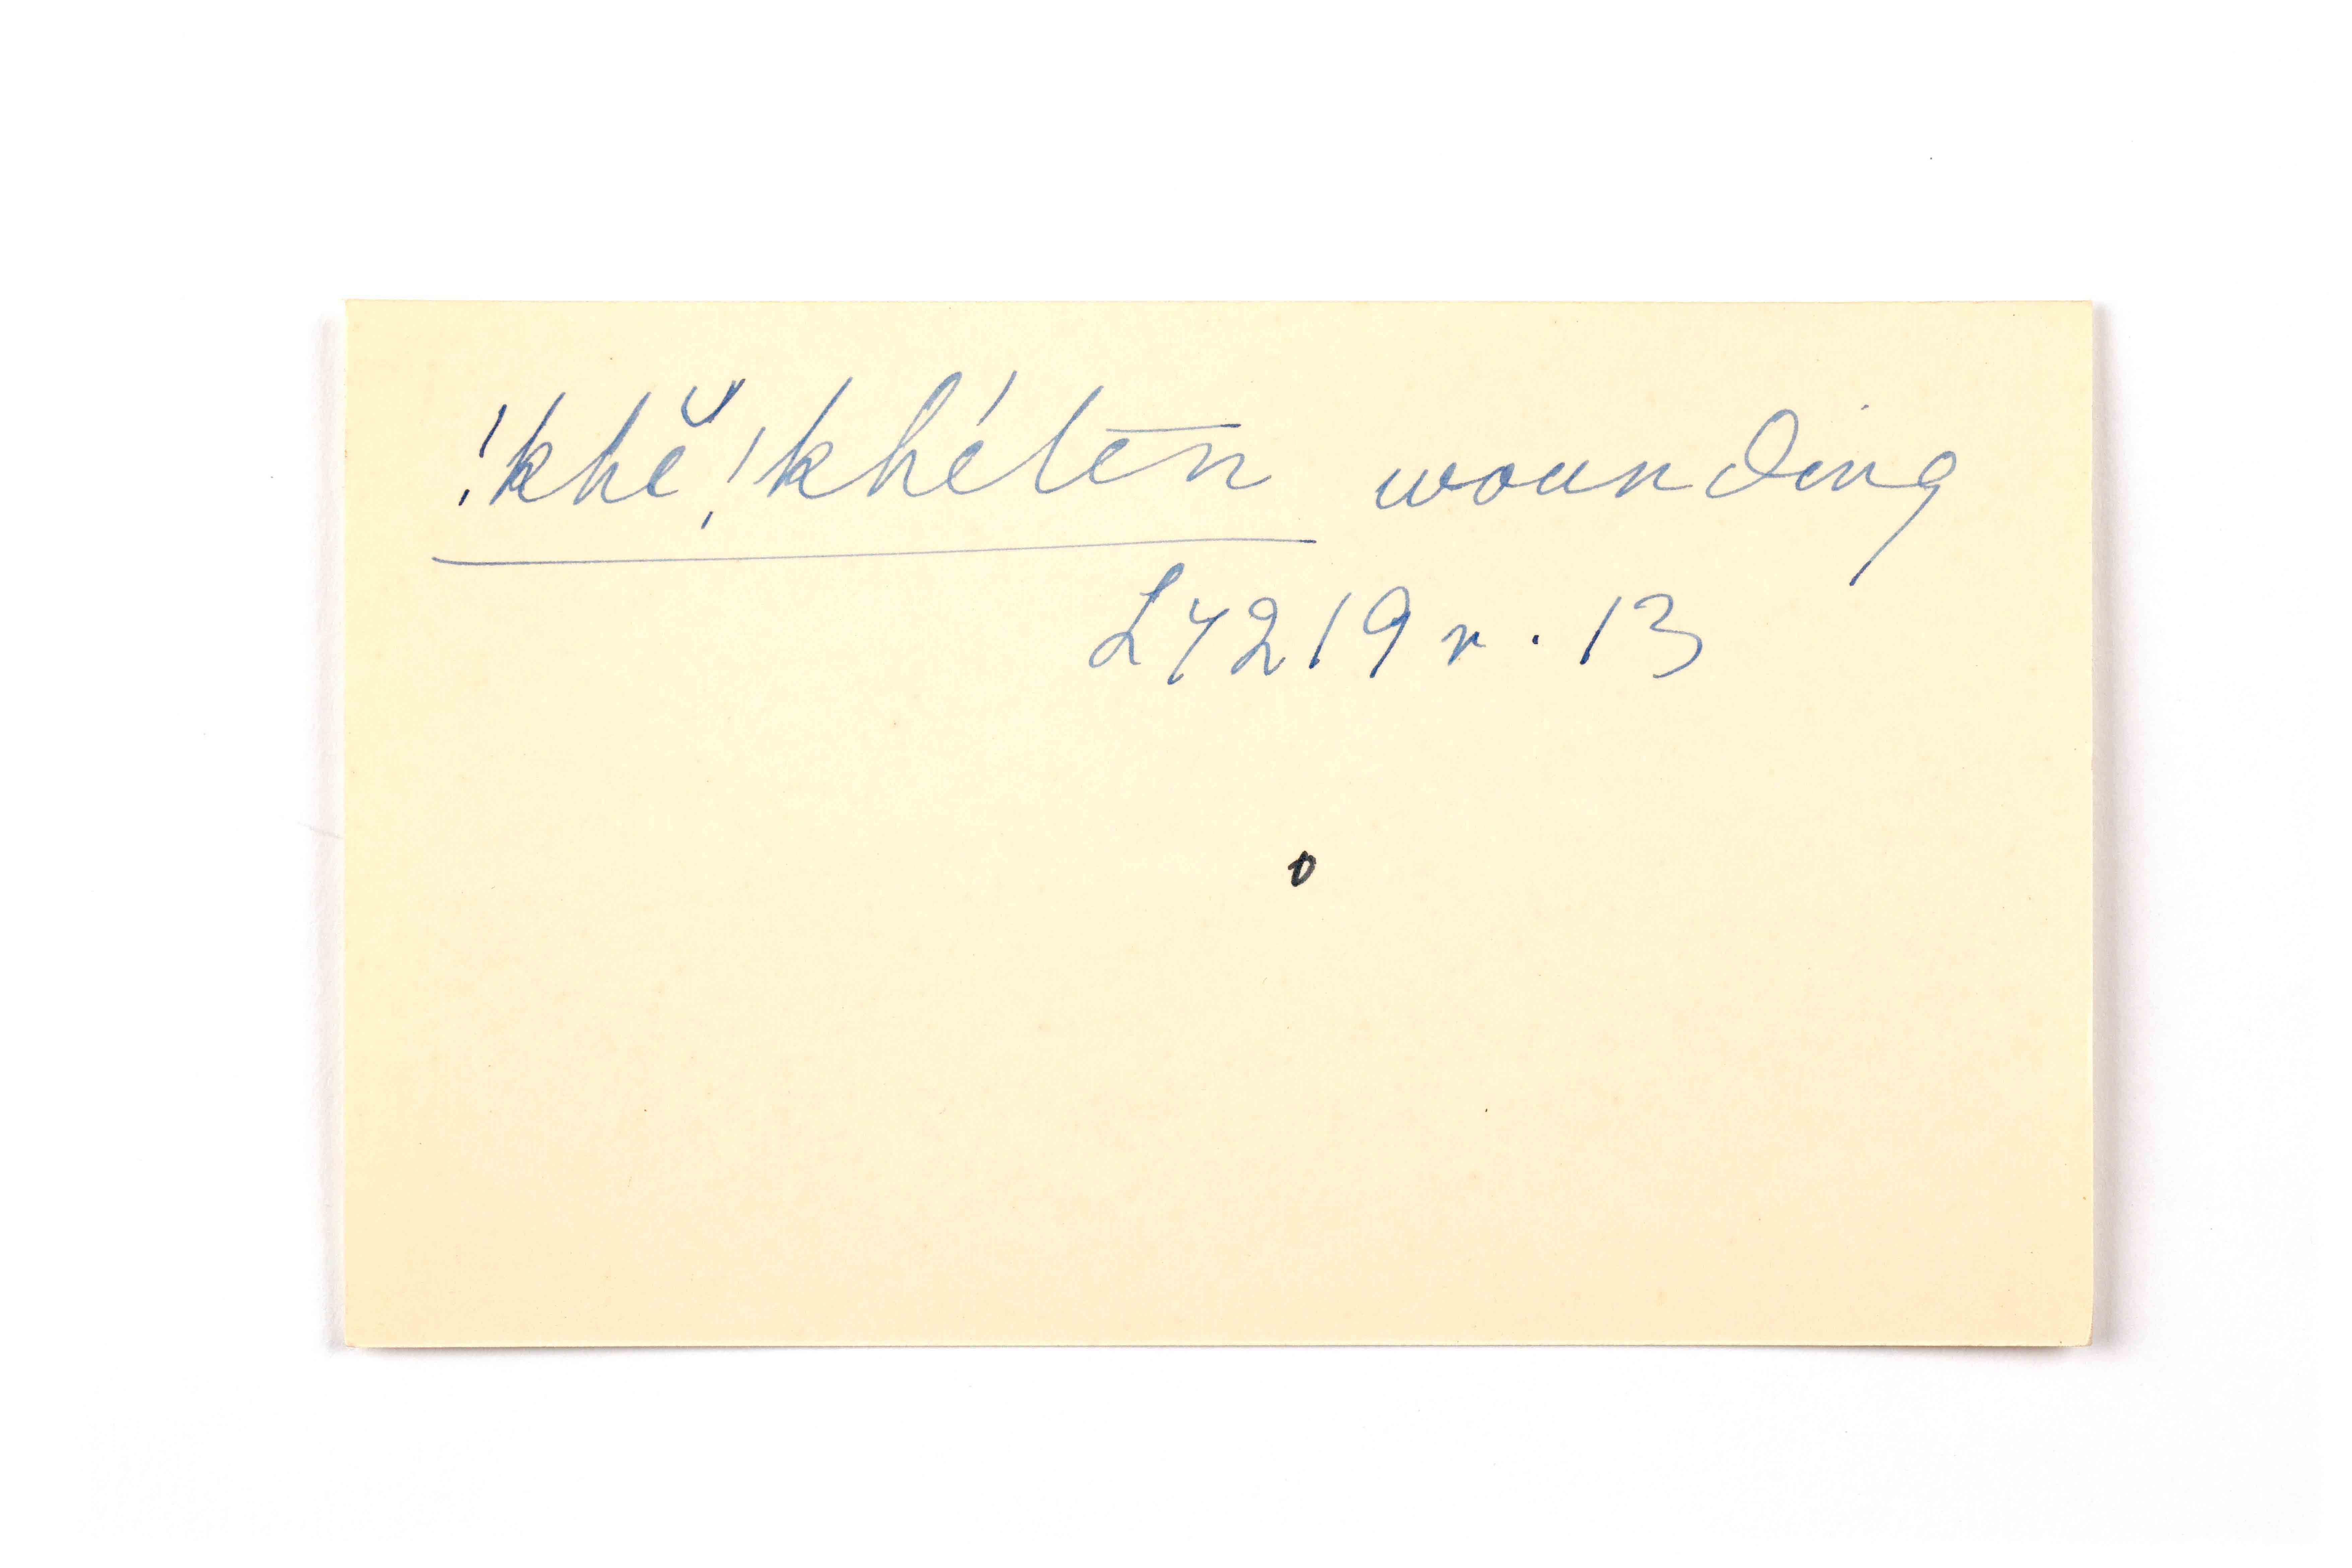 !khĕ!khétēn wounding
L 7219 r. 13
o